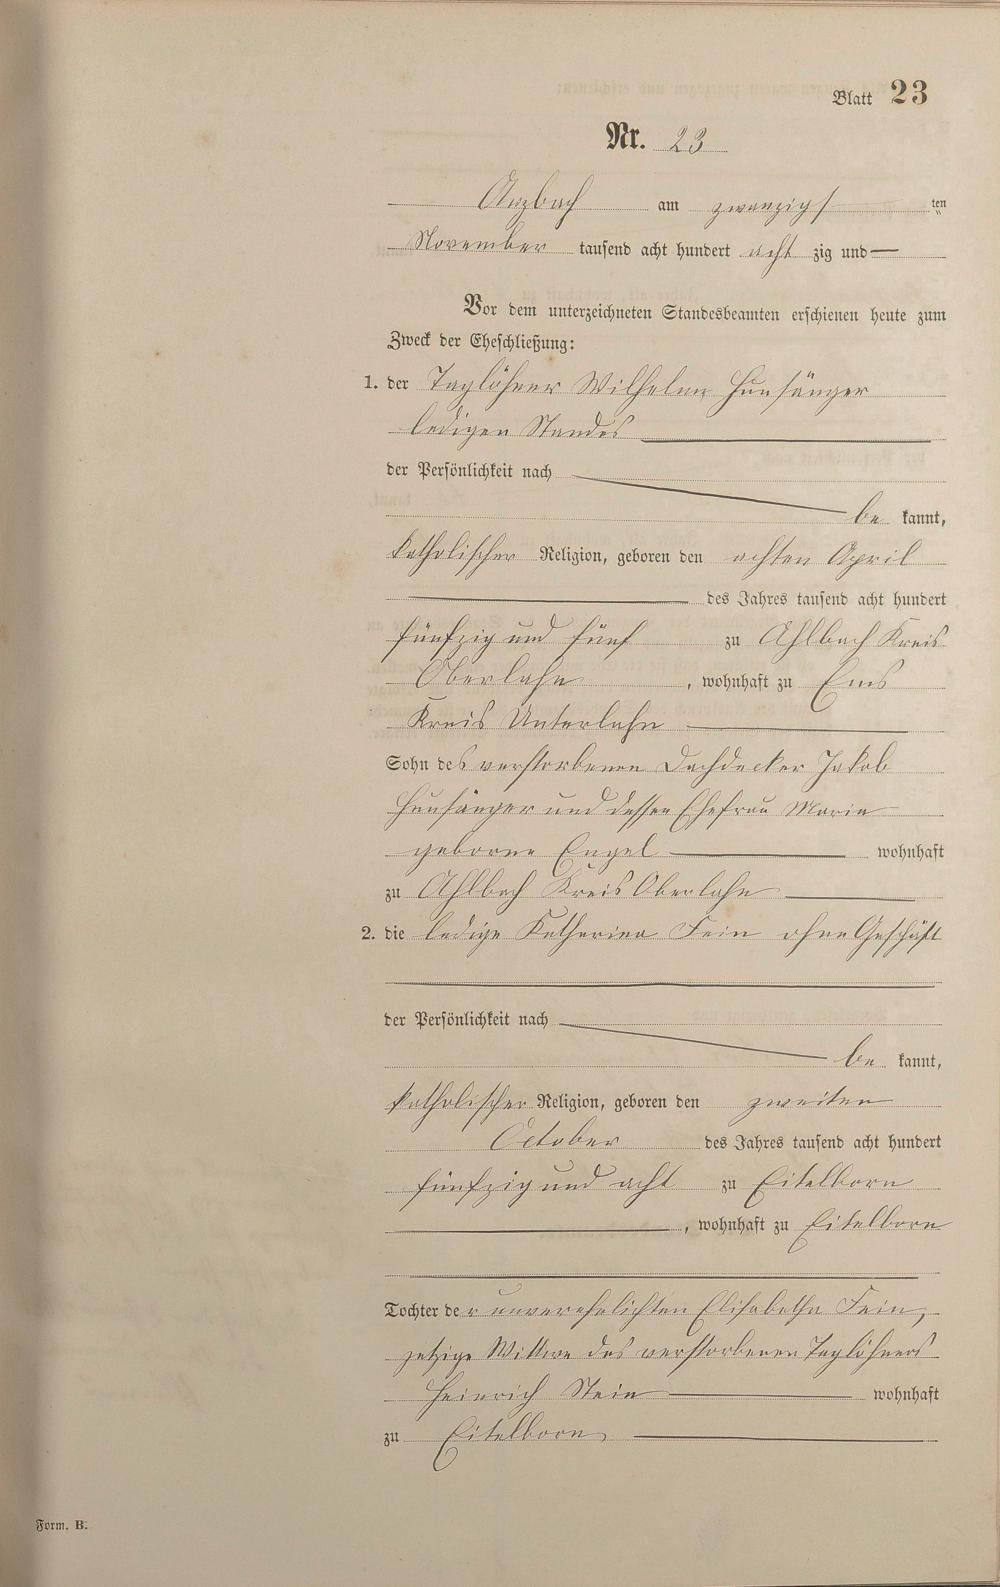 Blatt 23
Nr. 23
Arzbach am zwanzigsten
November tausend acht hundert achtzig und —
Vor dem unterzeichneten Standesbeamten erschienen heute zum
Zweck der Eheschließung:
1. der Taglöhner Wilhelm Hunsänger
ledigen Standes
der Persönlichkeit nach
be kannt,
katholischer Religion, geboren den achten April
des Jahres tausend acht hundert
fünfzig und fünf zu Ahlbach Kreis
Oberlahn, wohnhaft zu Ems
Kreis Unterlahn
Sohn des verstorbenen Dachdecker Jakob
Hunsänger und dessen Ehefrau Maria
geborne Engel wohnhaft
zu Ahlbach Kreis Oberlahn
2. die ledige Katharina Fein ohne Geschäft
der Persönlichkeit nach
be kannt,
katholischer Religion, geboren den zweiten
October des Jahres tausend acht hundert
fünfzig und acht zu Eitelborn
, wohnhaft zu Eitelborn
Tochter der unverehelichten Elisabetha Fein,
jetzige Wittwe des verstorbenen Taglöhners
Heinrich Stein wohnhaft
zu Eitelborn
Form. B.